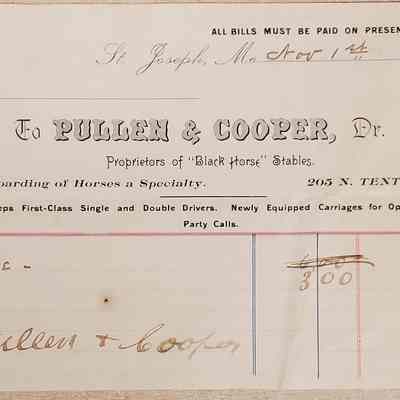 ALL BILLS MUST BE PAID ON PRESEN
St. Joseph, Mo Nov 1st
To PULLEN & COOPER, Dr.
Proprietors of "Black Horse" Stables.
oarding of Horses a Specialty. 205 N. TENT
eps First-Class Single and Double Drivers. Newly Equipped Carriages for Op
Party Calls.
3 00
ullen & Cooper